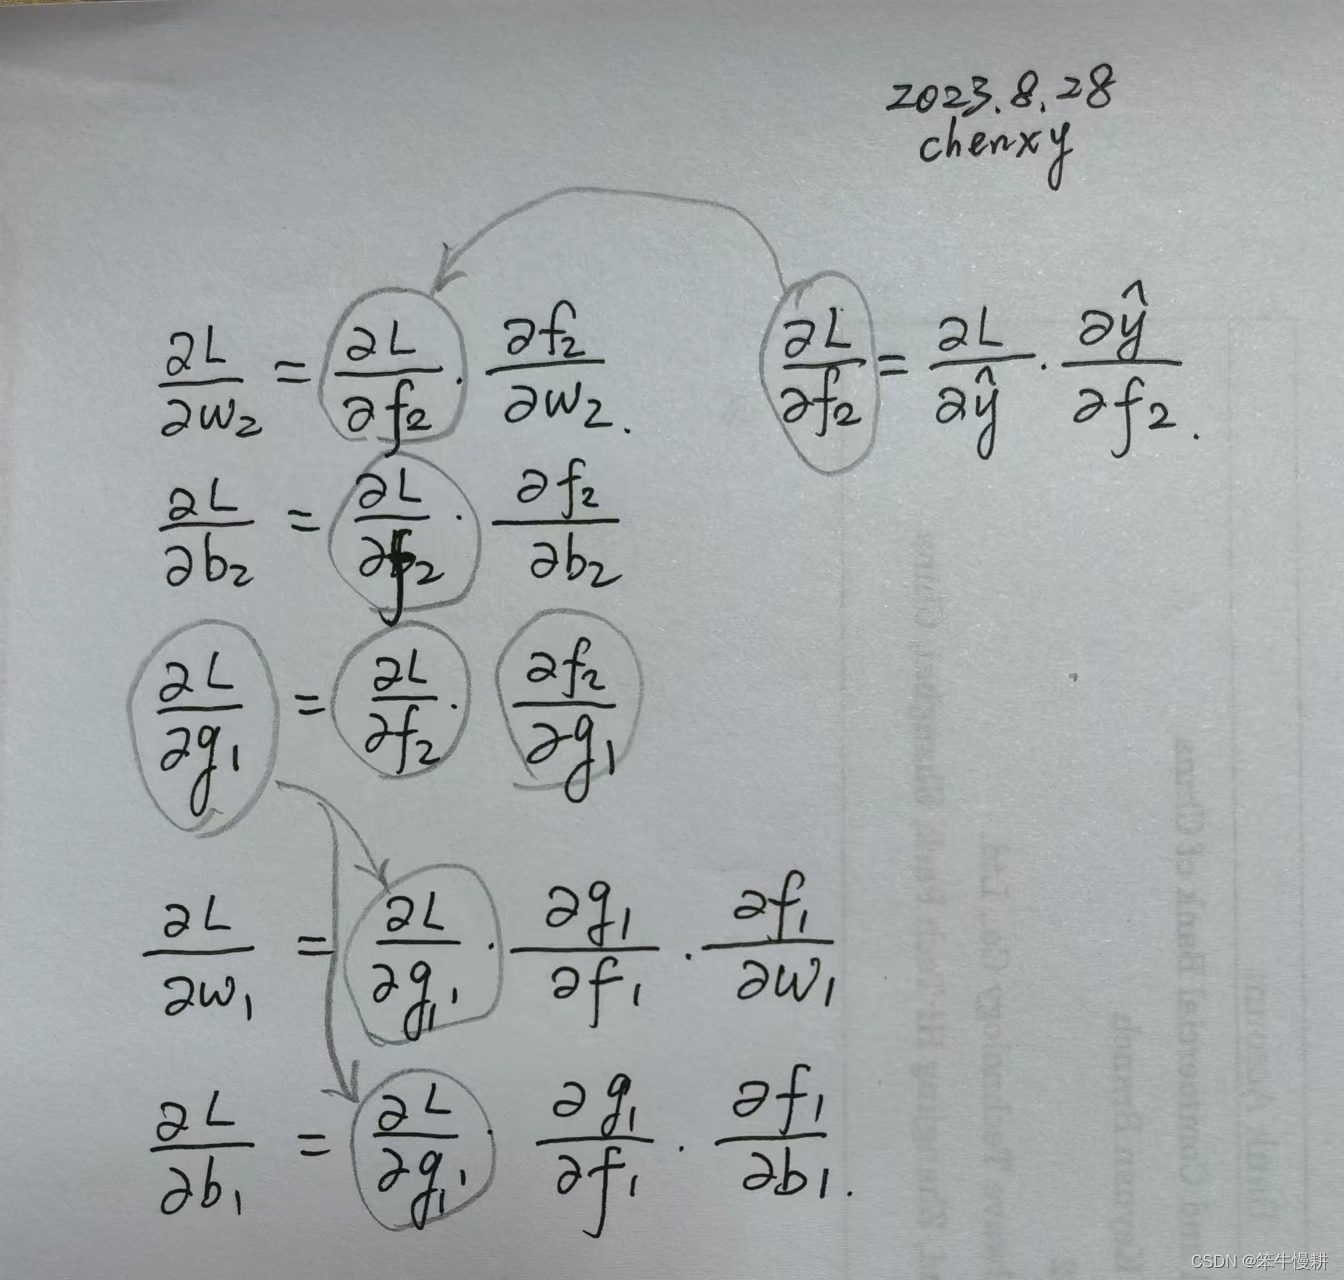 2023.8.28
chenxy
∂L/∂w₂ = ∂L/∂f₂ · ∂f₂/∂w₂. ∂L/∂f₂ = ∂L/∂ŷ · ∂ŷ/∂f₂.
∂L/∂b₂ = ∂L/∂f₂ · ∂f₂/∂b₂
∂L/∂g₁ = ∂L/∂f₂ · ∂f₂/∂g₁
∂L/∂w₁ = ∂L/∂g₁ · ∂g₁/∂f₁ · ∂f₁/∂w₁
∂L/∂b₁ = ∂L/∂g₁ · ∂g₁/∂f₁ · ∂f₁/∂b₁.
CSDN @笨牛慢耕